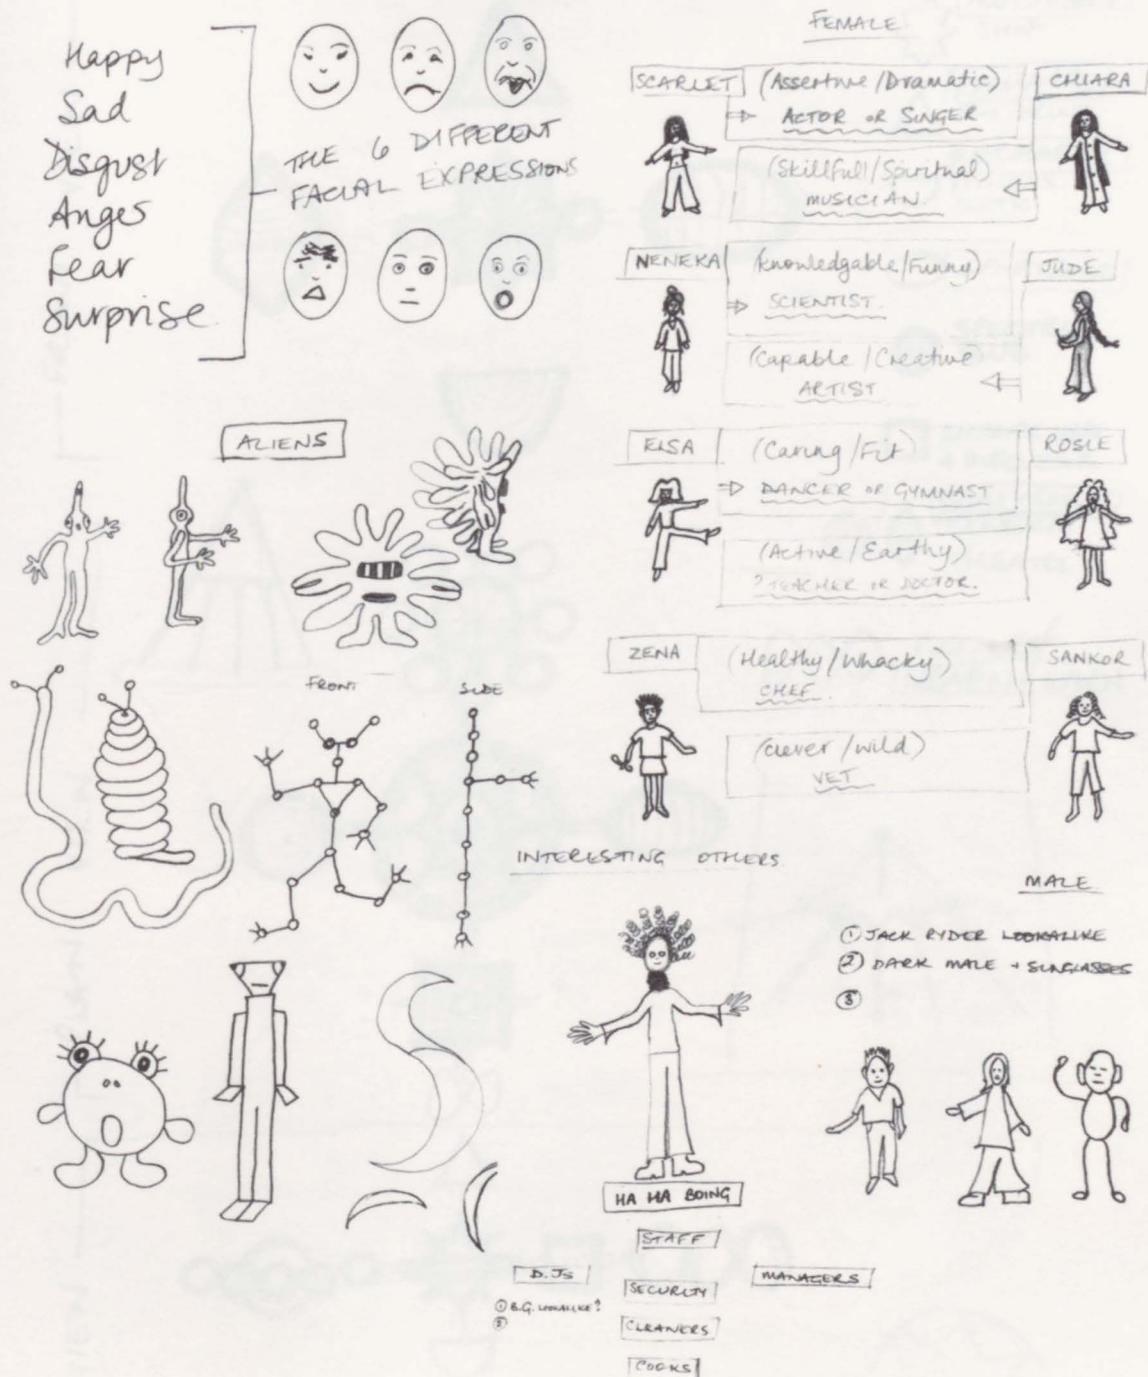 Happy
Sad
Disgust
Anger
Fear
Surprise
THE 6 DIFFERENT
FACIAL EXPRESSIONS
FEMALE
SCARLET
(Assertive/Dramatic)
⇒ ACTOR OR SINGER
CHIARA
(Skillfull/Spiritual)
MUSICIAN.
NENEKA
(Knowledgable/Funny)
⇒ SCIENTIST.
JUDE
(Capable/Creative
ARTIST
ELSA
(Caring/Fit)
⇒ DANCER OR GYMNAST
ROSIE
(Active/Earthy)
? TEACHER OR DOCTOR.
ZENA
(Healthy/Whacky)
CHEF.
SANKOR
(Clever/wild)
VET
ALIENS
FRONT
SIDE
INTERESTING OTHERS
MALE
① JACK RYDER LOOKALIKE
② DARK MALE + SUNGLASSES
③
HA HA BOING
STAFF
D.Js
① B.G. LOOKALIKE?
②
SECURITY
CLEANERS
COOKS
MANAGERS